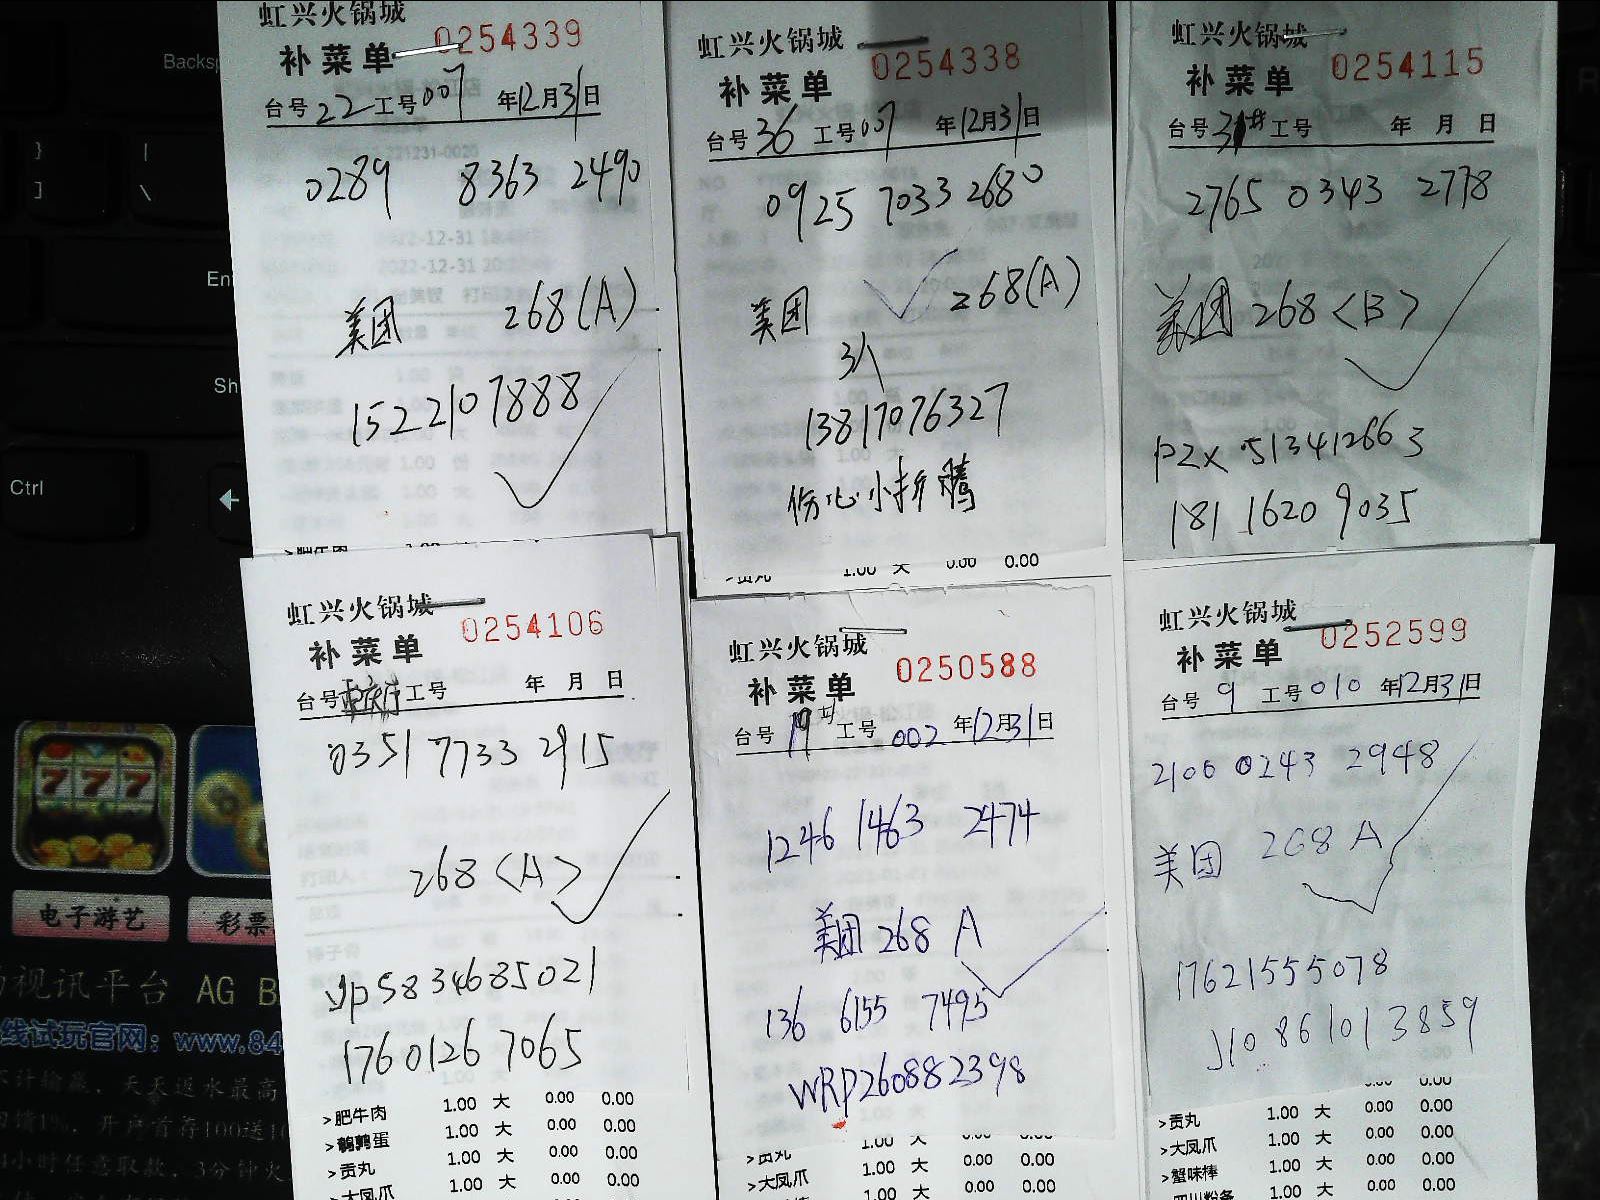 虹兴火锅城
补菜单 0254339
台号 22 工号 007 年12月31日
0289 8363 2490
美团 268(A)
15221107888
>肥牛肉
虹兴火锅城
补菜单 0254338
台号 36 工号 007 年12月31日
0925 7033 2680
美团 268(A)
3人
13817076327
伤心小折腾
1.00 大 0.00 0.00
虹兴火锅城
补菜单 0254115
台号 工号 年 月 日
2765 0343 2778
美团 268<B>
PZX 513412663
181 1620 9035
虹兴火锅城
补菜单 0254106
台号 工号 年 月 日
0351 7733 2915
268<A>
yp5834685021
1760126 7065
>肥牛肉 1.00 大 0.00 0.00
>鹌鹑蛋 1.00 大 0.00 0.00
>贡丸 1.00 大 0.00 0.00
>大凤爪 1.00 大 0.00 0.00
虹兴火锅城
补菜单 0250588
台号 19# 工号 002 年12月31日
1246 1463 2474
美团 268 A
136 6155 7495
WRP260882398
>贡丸 1.00 大 0.00 0.00
>大凤爪 1.00 大 0.00 0.00
1.00 大 0.00 0.00
虹兴火锅城
补菜单 0252599
台号 9 工号 010 年12月31日
2100 0243 2948
美团 268 A
17621555078
J10861013859
>贡丸 1.00 大 0.00 0.00
>大凤爪 1.00 大 0.00 0.00
>蟹味棒 1.00 大 0.00 0.00
>四川粉条 1.00 大 0.00 0.00
Backsp
}
]
|
\
Ent
Sh
Ctrl
777
电子游艺
彩票
视讯平台 AG B
线试玩官网：www.84
不计输赢，天天返水最高
1%，开户首存100送1
小时任意取款，3分钟火